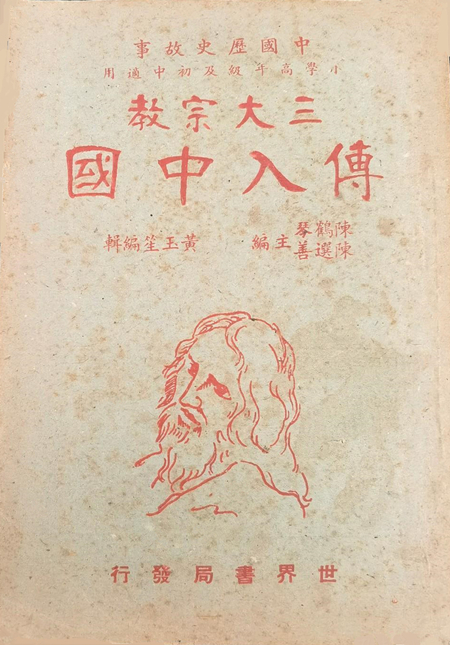 中國歷史故事
小學高年級及初中適用
三大宗教
傳入中國
陳鶴琴
陳選善
主編
黃玉笙編輯
世界書局發行